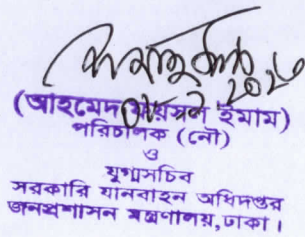 (আহমেদ ফয়সল ইমাম)
পরিচালক (নৌ)
ও
যুগ্মসচিব
সরকারি যানবাহন অধিদপ্তর
জনপ্রশাসন মন্ত্রণালয়, ঢাকা।